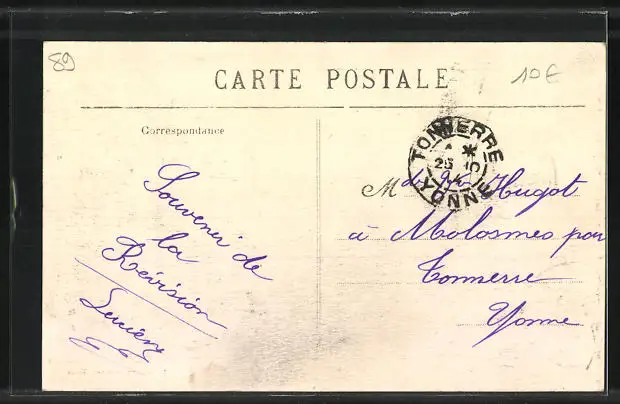 89
10€
CARTE POSTALE
Correspondance
TONNERRE
25
YONNE
Souvenir de
la
Révision
Lucien
M Hugot
à Molosmes par
Tonnerre
Yonne